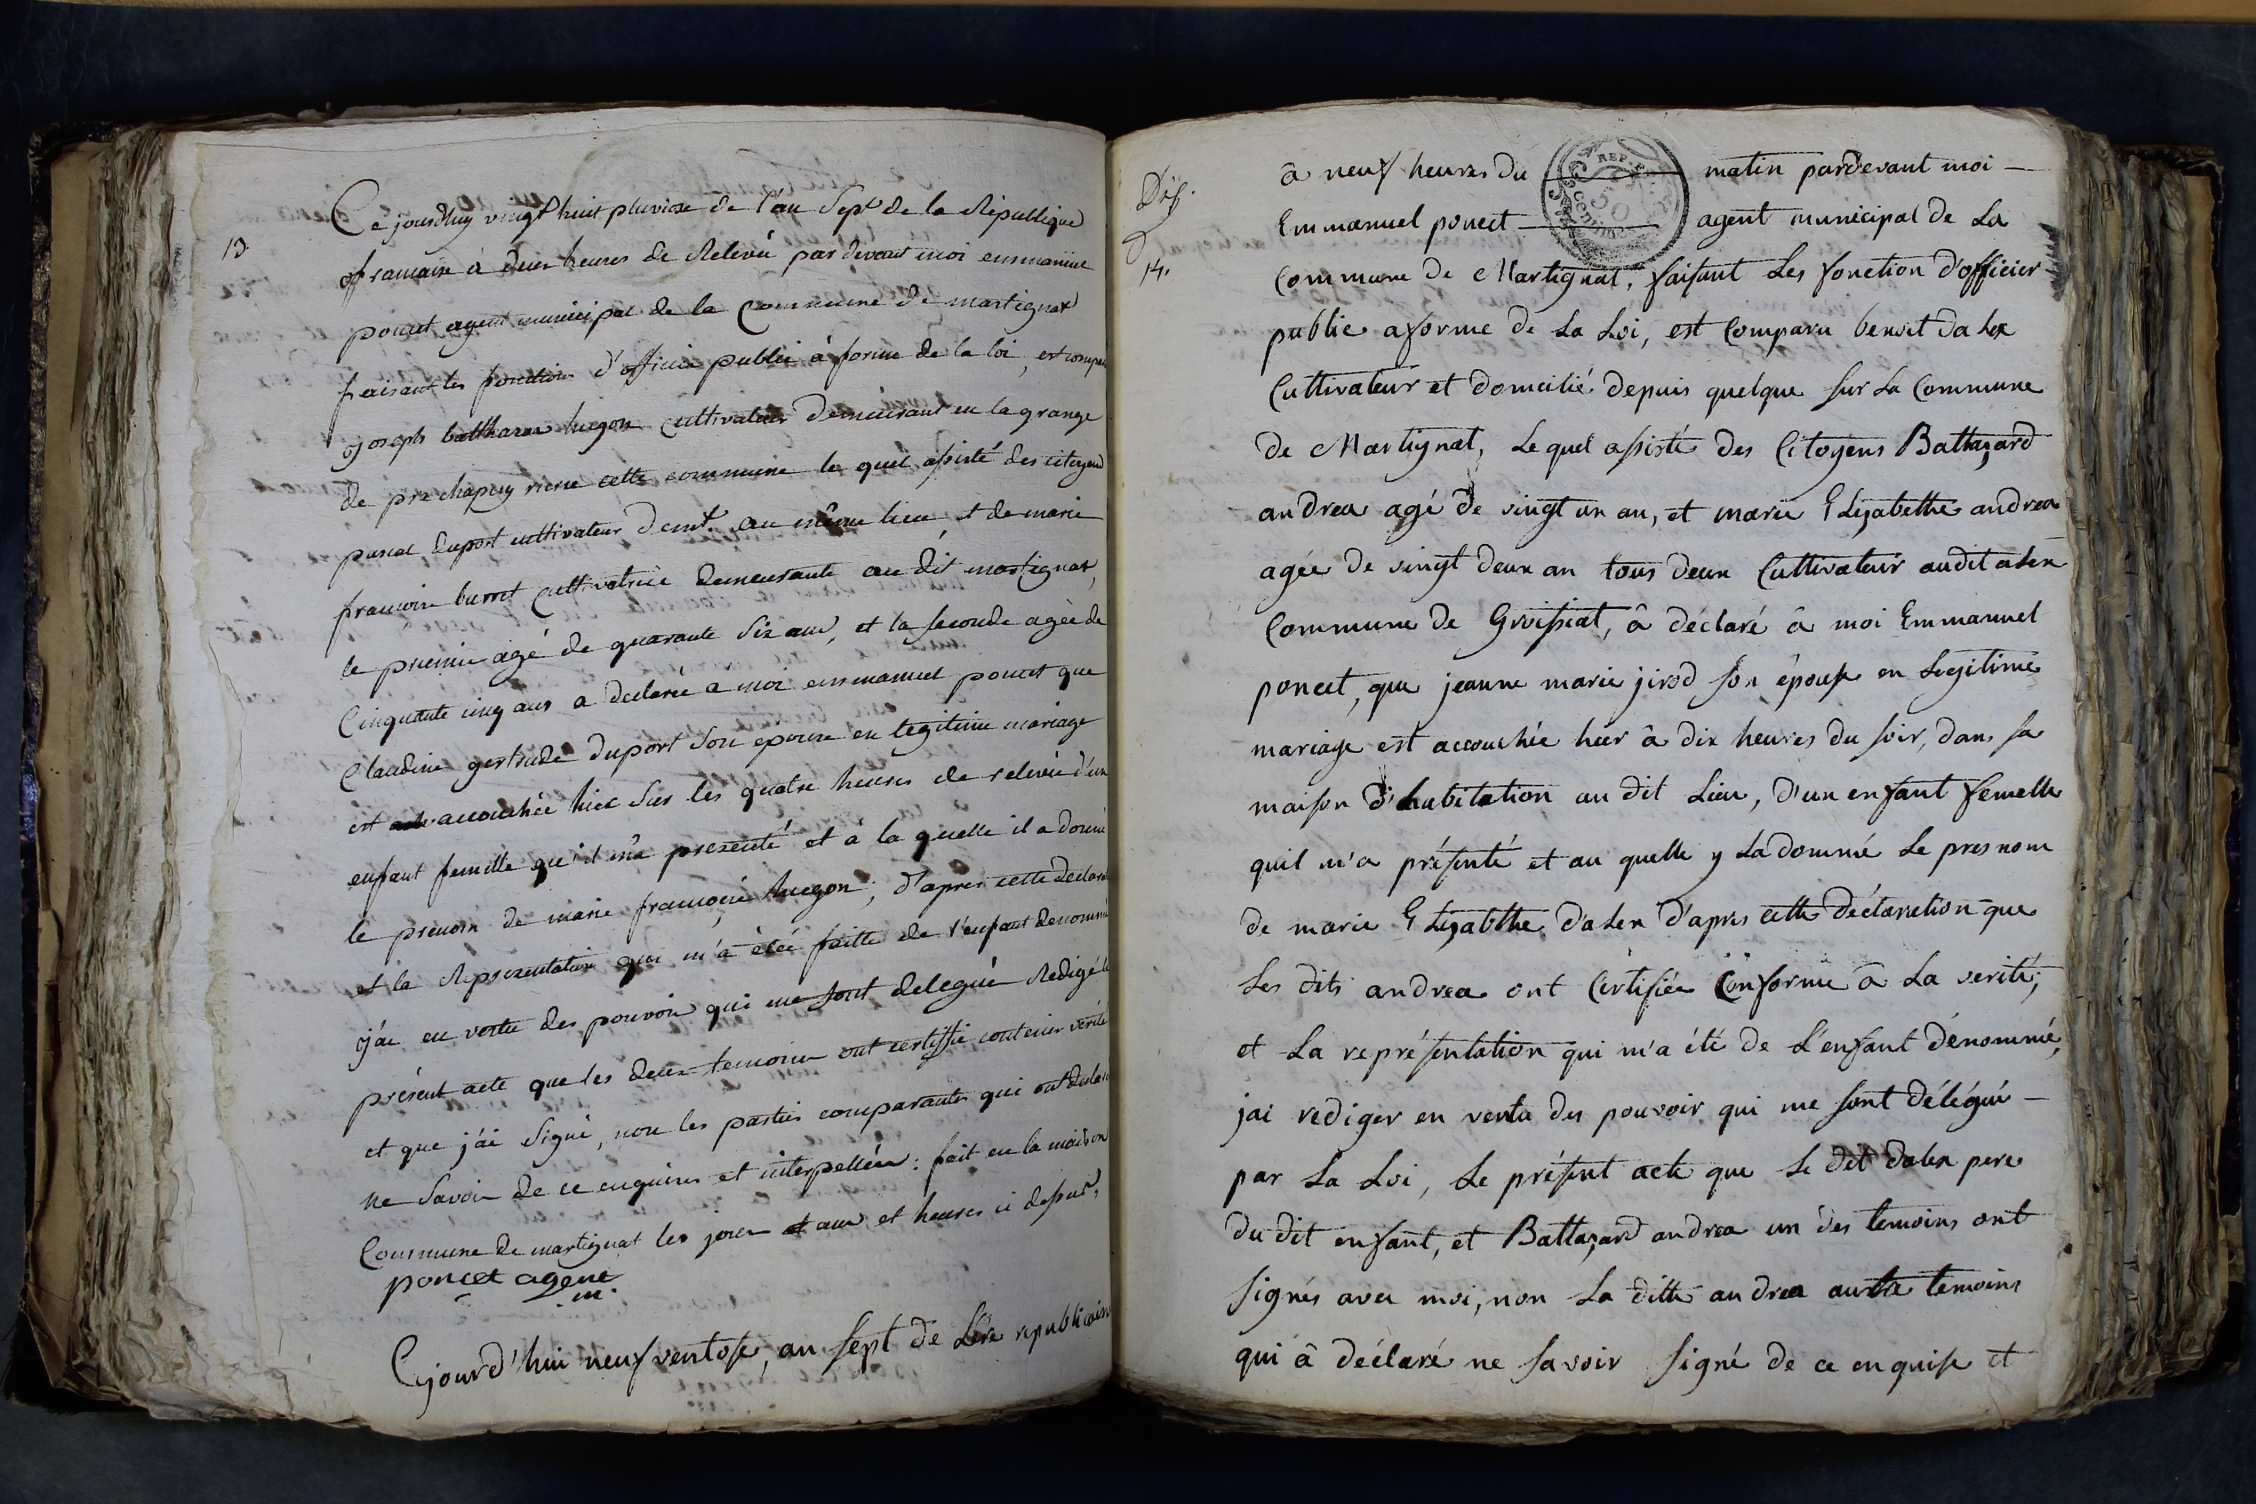 13.
Ce jourdhuy vingt huit pluviose de l'an sept de la Republique
francaise à deux heures de Relevée par devant moi emmanuel
poncet agent municipal de la Commune de martignat
faisant les fonctions d'officier public à forme de la loi, est compar
joseph balthazar hugon cultivateur demeurant en la grange
de pre chapuy riere cette commune le quel assisté des citoyens
pascal duport cultivateur demt. au même lieu et de marie
francoise burret cultivatrice demeurante au dit martignat,
le premier agé de quarante six ans, et la seconde agée de
Cinquante cinq ans a declaré à moi emmanuel poncet que
Claudine gertrude duport son epouse en legitime mariage
est accouchée hier sur les quatre heures de relevée d'un
enfant femelle qu'il m'a presenté et à la quelle il a donné
le prenom de marie francoise hugon; d'apres cette declara
et la Representation qui m'a été faitte de l'enfant denommé
j'ai en vertu des pouvoir qui me sont delegué Redigé le
présent acte que les deux temoins ont certiffié contenir verité
et que j'ai signé, non les parties comparantes qui ont declaré
ne savoir de ce enquises et interpellées: fait en la maison
Commune de martignat les jour et an et heures ci dessus,
poncet agent
m.
Cejourd'hui neuf ventose, an sept de Lere republicain
14.
à neuf heures du matin pardevant moi
Emmanuel poncet agent municipal de La
Commune de Martignat, faisant Les fonction d'officier
public a forme de La Loi, est Comparu benoit dalex
REP. F.
50
CENTIMES
Cultivateur et domcilié depuis quelque sur La Commune
de Martignat, Le quel assisté des Citoyens Baltazard
andrea agé de vingt un an, et marie Elizabethe andrea
agée de vingt deux an tous deux Cultivateur audit alex
Commune de Groissiat, à déclaré à moi Emmanuel
poncet, que jeanne marie jirod son épouse en Legitime
mariage est accouchée hier à dix heures du soir, dans sa
maison d'habitation au dit Lieu, d'un enfant femelle
quil m'a présenté et au quelle y La donné Le pres nom
de marie Elizabthe dalex d'apres cette déclaration que
Les dits andrea ont Certifiée Conforme à La verité;
et La représentation qui m'a été de L'enfant dénommé,
jai rediger en vertu des pouvoir qui me sont délégué
par La Loi, Le présent acte que Le dit dalex pere
du dit enfant, et Baltazard andrea un des temoins ont
signés avec moi, non La ditte andrea autre temoins
qui à déclaré ne savoir signé de ce enquise et